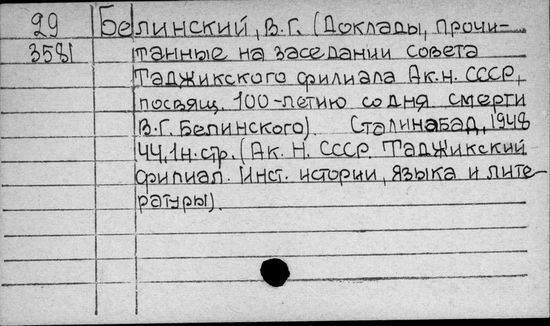 29 Белинский, В.Г. (Доклады, прочи-
3581 танные на заседании совета
Таджикского филиала Ак.н. СССР,
посвящ. 100-летию со дня смерти
В.Г. Белинского). Сталинабад, 1948
44,1н.стр. (Ак. Н. СССР. Таджикский
филиал. Инст. истории, языка и лите-
ратуры).